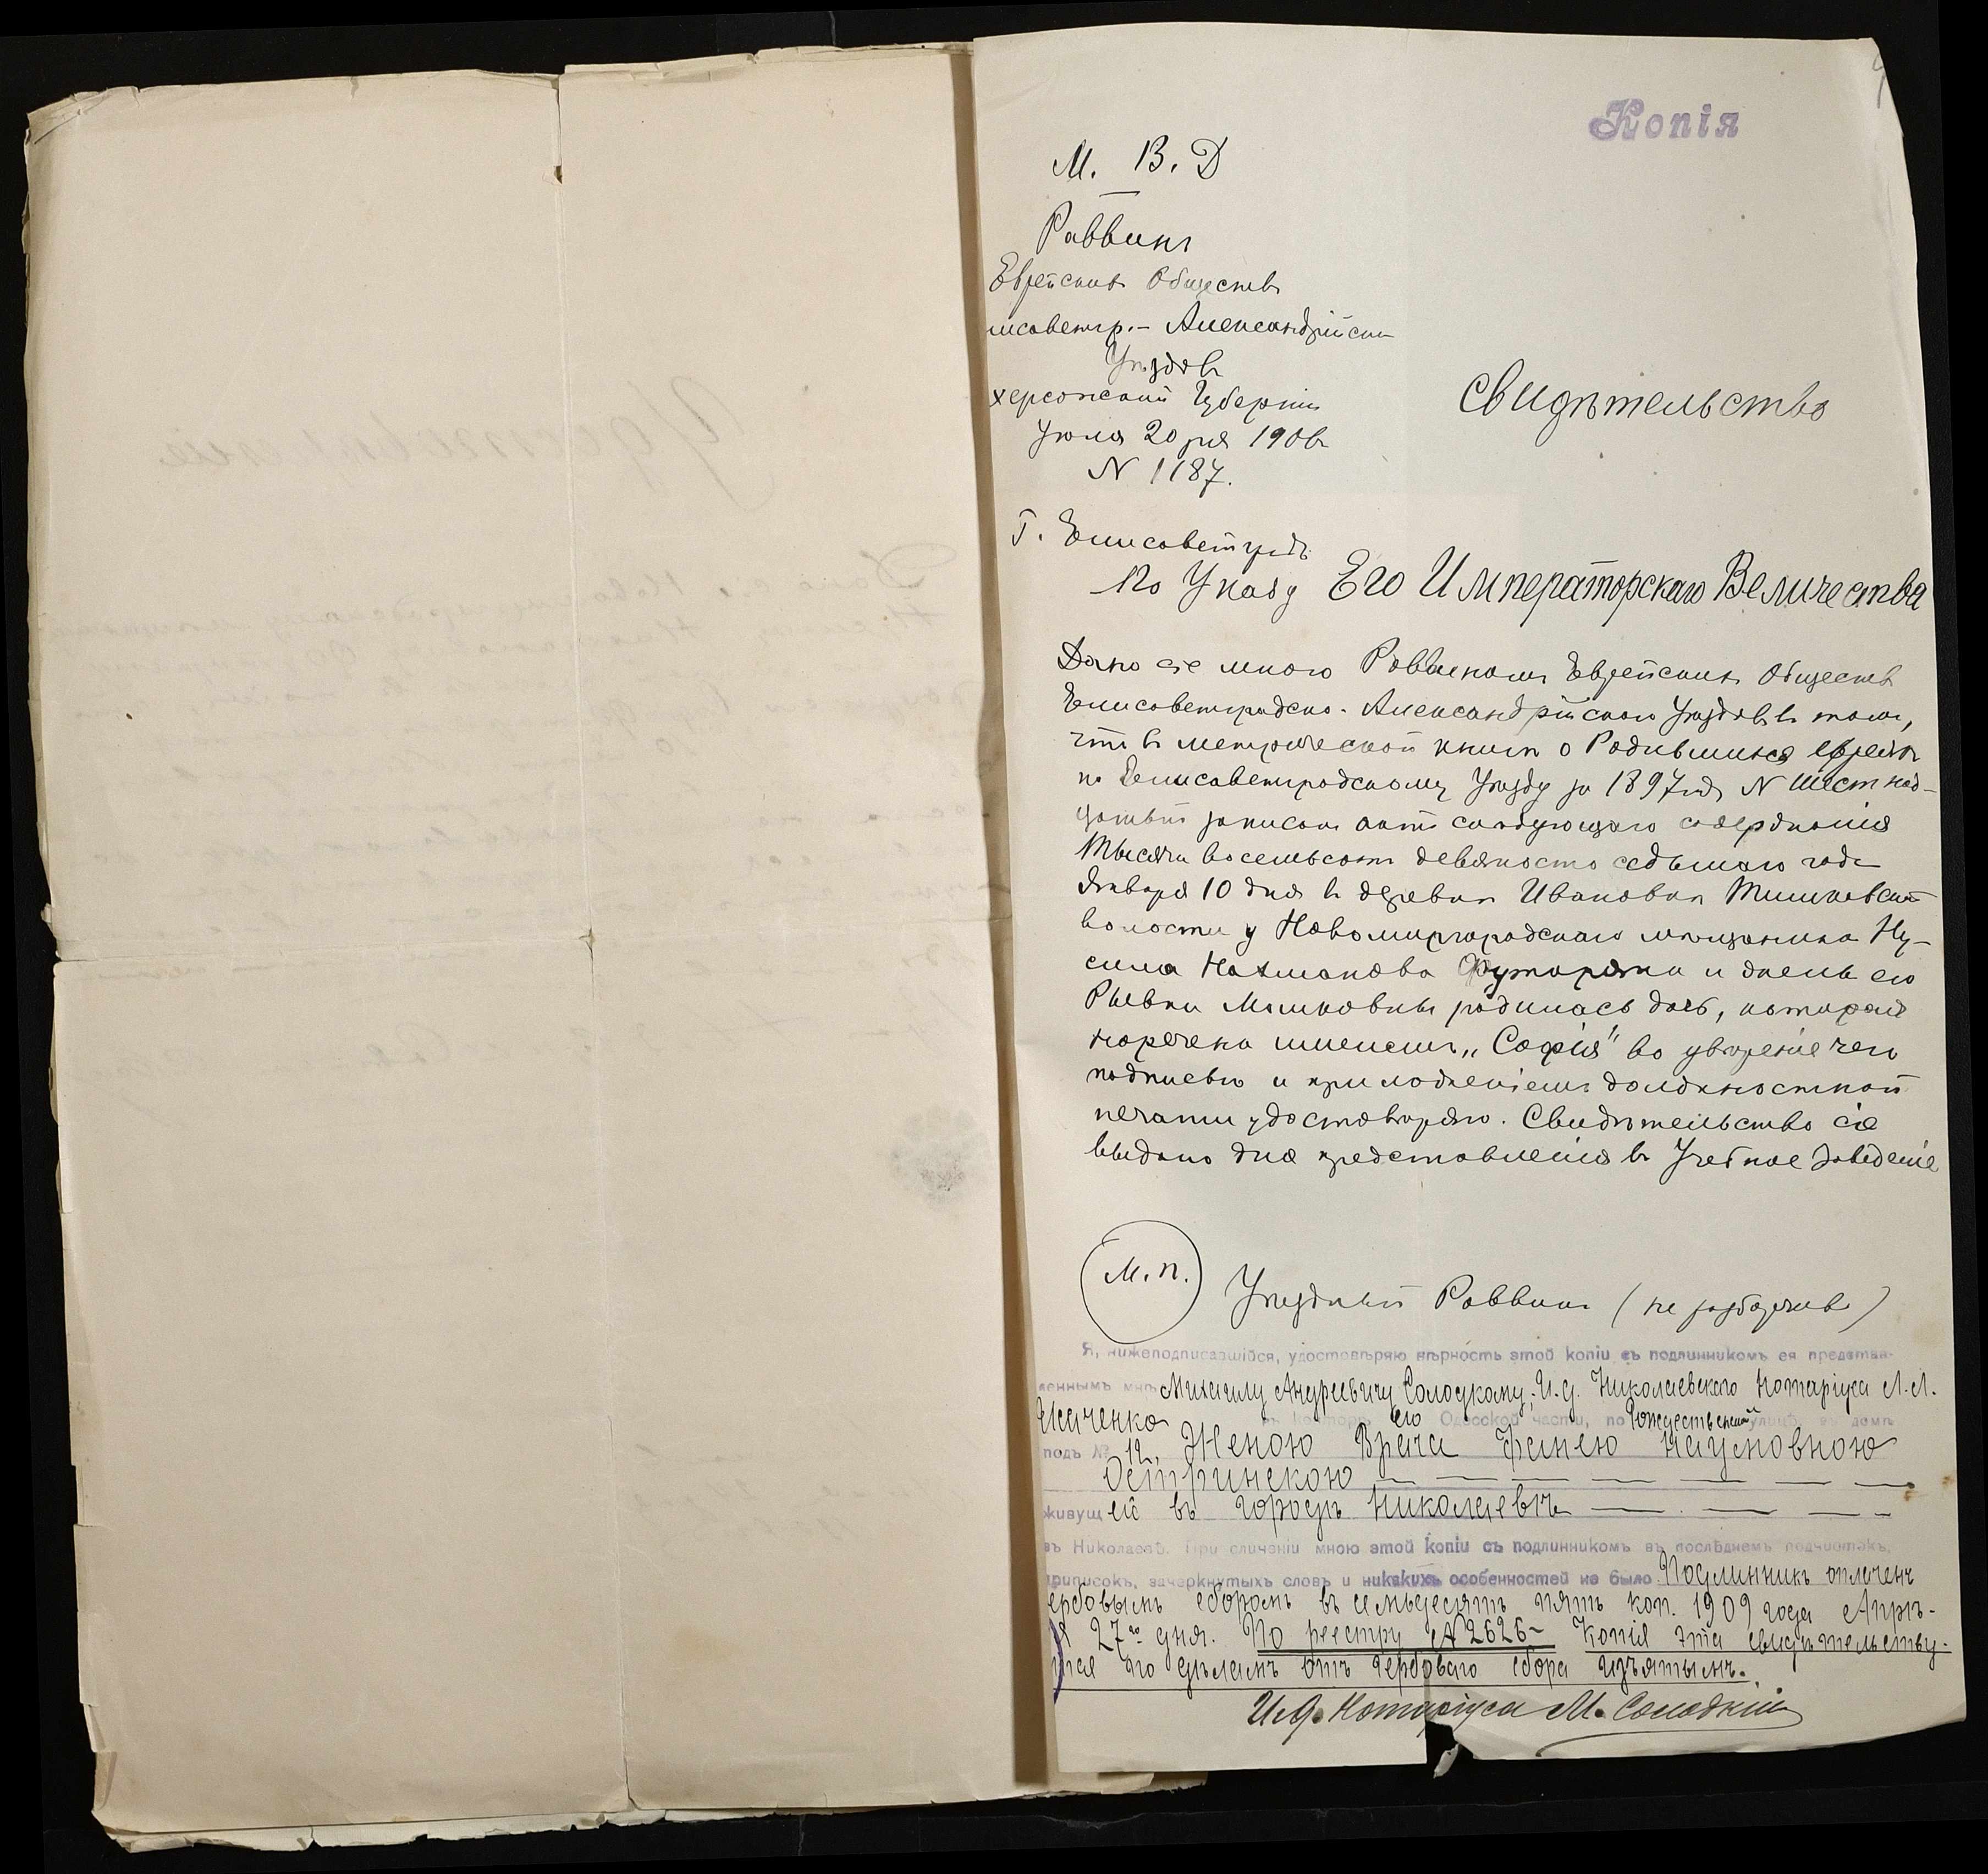 Копія
М. В. Д
Раввинъ
Еврейскихъ Обществъ
исаветгр.- Александрійск
Уѣздовъ
Херсонской Губерніи
Іюля 20 дня 1906
N 1187.
Г. Елисаветградъ
Свидѣтельство
По Указу Его Императорскаго Величества
Дано сіе мною Раввиномъ Еврейскихъ Обществъ
Елисаветградско-Александрійскаго Уѣздовъ въ томъ,
что въ метрической книгѣ о Родившихся евреяхъ
по Елисаветградскому Уѣзду за 1897 годъ N Шестнад-
цатый записанъ актъ слѣдующаго содержанія
Тысяча восемьсотъ девяносто седьмого года
Января 10 дня въ деревнѣ Ивановкѣ Тишковской
волости у Новомиргородскаго мѣщанина Ну-
сима Нахманова Футоряна и жены его
Ривки Мошковны родилась дочь, которая
наречена именемъ „Софія" во увѣреніе чего
подписью и приложеніемъ должностной
печати удостовѣряю. Свидѣтельство сіе
выдано для представленія въ Учебное Заведеніе
М. П.
Уѣздный Раввинъ (не разборчиво)
Я, нижеподписавшійся, удостовѣряю вѣрность этой копіи съ подлинникомъ ея представ-
леннымъ мнѣ Михаилу Андреевичу Солодкому, И. д. Николаевскаго Нотаріуса Л. Л.
въ конторѣ его Одесской части, по Рождественской улицѣ, въ домѣ
подъ № 12, Женою Врача Фанею Наумовною
Остринскою
живущей въ городѣ Николаевѣ
въ Николаевѣ. При сличеніи мною этой копіи съ подлинникомъ въ послѣднемъ подчистокъ,
приписокъ, зачеркнутыхъ словъ и никакихъ особенностей не было. Подлинникъ оплаченъ
ербовымъ сборомъ въ семьдесятъ пять коп. 1909 года Апрѣ-
ля 27го дня. По реестру N 2626- Копія эта свидѣтельству-
тся по дѣламъ отъ гербоваго сбора изъятымъ.
И. д. Нотаріуса М. Солодкій